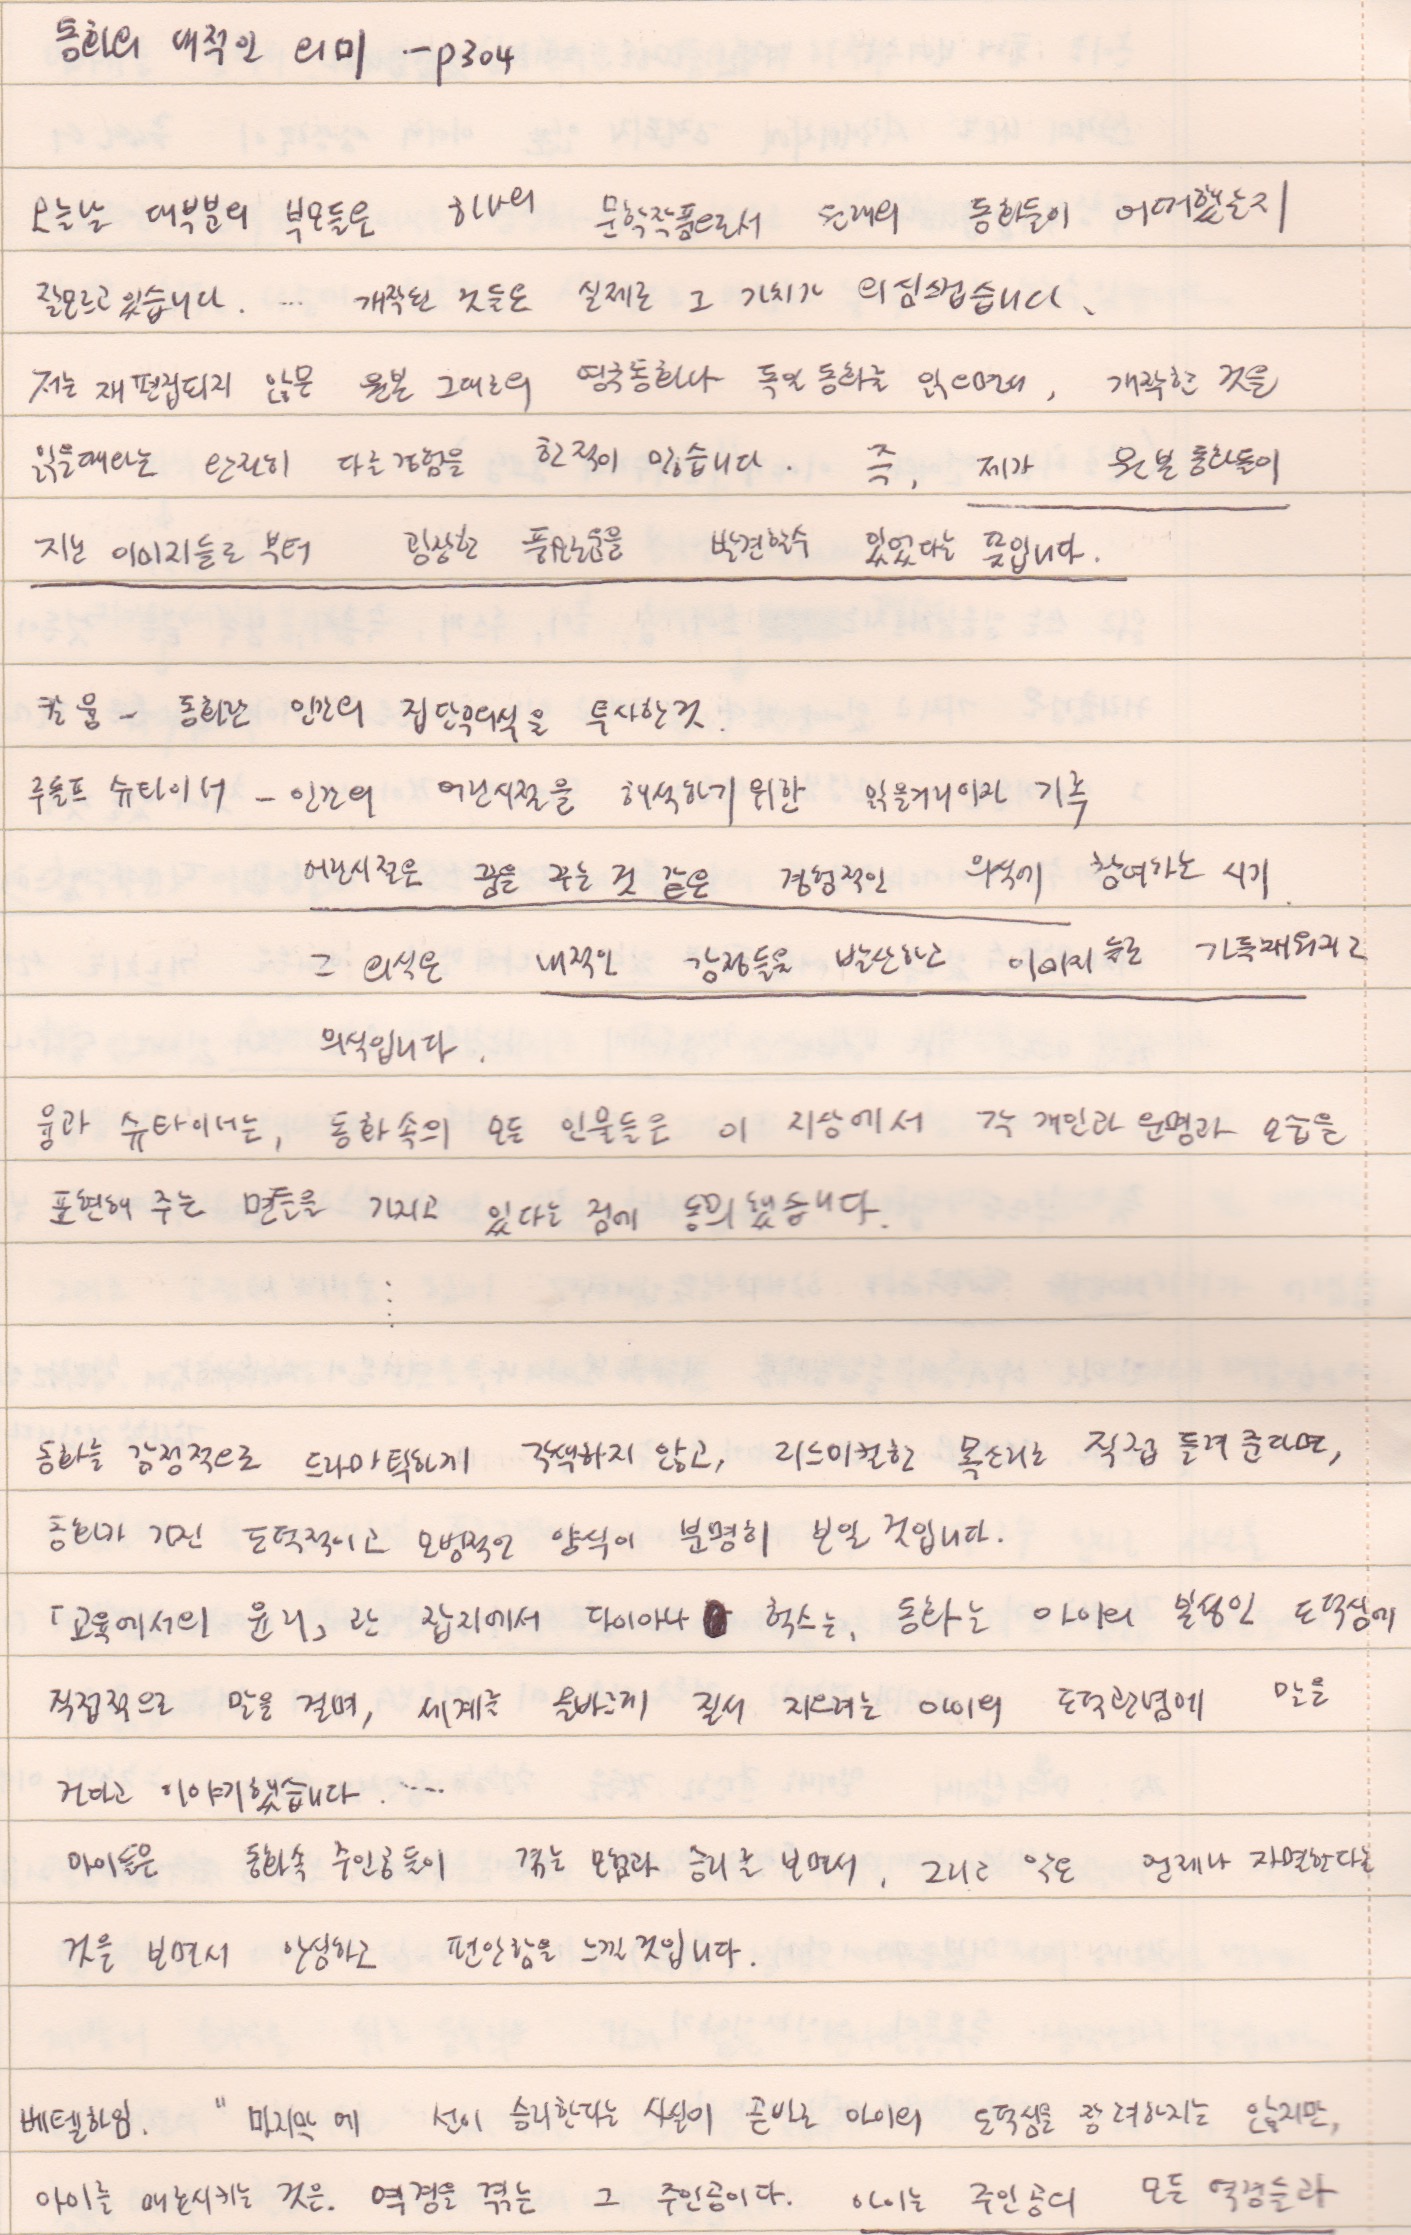 동화의 내적인 의미 --p304
오늘날 대부분의 부모들은 하나의 문학작품으로서 본래의 동화들이 어떠했는지
잘모르고 있습니다. … 개작된 것들은 실제로 그 가치가 의심스럽습니다.
저는 재편집되지 않은 원본 그대로의 영국동화나 독일 동화를 읽으면서, 개작한 것을
읽을때와는 완전히 다른경험을 한적이 있습니다. 즉, 제가 원본 동화들이
지닌 이미지들로 부터 굉장한 풍요로움을 발견할수 있었다는 뜻입니다.
칼 융 - 동화란 인간의 집단무의식을 투사한것.
루돌프 슈타이너 - 인간의 어린시절을 해석하기 위한 읽을거리이자 기록
어린시절은 꿈을 꾸는 것 같은 경험적인 의식에 참여하는 시기.
그 의식은 내적인 감정들을 발산하고 이미지들로 가득채워지고
의식입니다.
융과 슈타이너는, 동화속의 모든 인물들은 이 지상에서 각 개인과 운명과 모습을
표현해 주는 면들을 가지고 있다는 점에 동의했습니다.
⋮
동화를 감정적으로 드라마틱하게 각색하지 않고, 리드미컬한 목소리로 직접 들려 준다면,
동화가 가진 도덕적이고 모범적인 양식이 분명히 보일 것입니다.
「교육에서의 윤리」란 잡지에서 다이아나 헉스는, 동화는 아이의 본성인 도덕성에
직접적으로 말을 걸며, 세계를 올바르게 질서 지으려는 아이의 도덕관념에 말을
건다고 이야기했습니다. ……
아이들은 동화속 주인공들이 겪는 모험과 승리를 보면서, 그리고 악은 언제나 자멸한다는
것을 보면서 안심하고 편안함을 느낄 것입니다.
베텔하임. " 마지막에 선이 승리한다는 사실이 곧바로 아이의 도덕심을 장려하지는 않지만,
아이를 매혹시키는 것은. 역경을 겪는 그 주인공이다. 아이는 주인공의 모든 역경들과